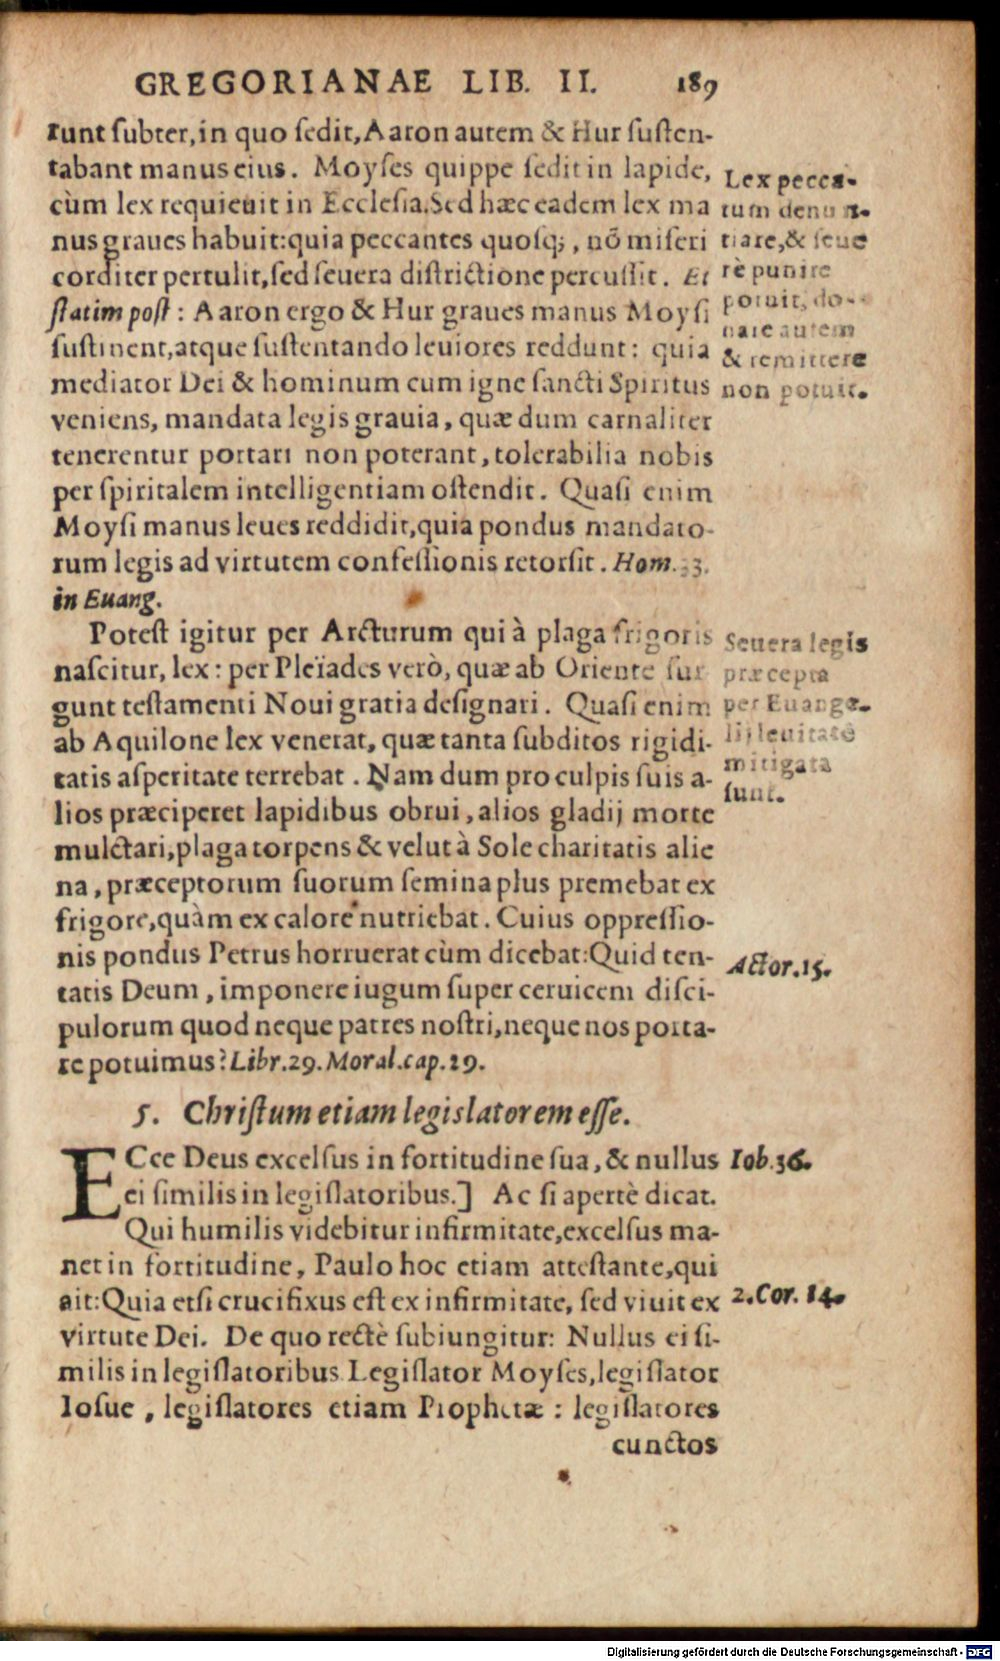 GREGORIANAE LIB. II. 189
runt subter, in quo sedit, Aaron autem & Hur susten-
tabant manus eius. Moyses quippe sedit in lapide,
cùm lex requieuit in Ecclesia. Sed hæc eadem lex ma
nus graues habuit: quia peccantes quosq;, nõ miseri
corditer pertulit, sed seuera districtione percussit. Et
statim post: Aaron ergo & Hur graues manus Moysi
sustinent, atque sustentando leuiores reddunt: quia
mediator Dei & hominum cum igne sancti Spiritus
veniens, mandata legis grauia, quæ dum carnaliter
tenerentur portari non poterant, tolerabilia nobis
per spiritalem intelligentiam ostendit. Quasi enim
Moysi manus leues reddidit, quia pondus mandato-
rum legis ad virtutem confessionis retorsit. Hom. 33.
in Euang.
Lex pecca-
tum denun-
tiare, & seue
rè punire
potuit, do-
nare autem
& remittere
non potuit.
Potest igitur per Arcturum qui à plaga frigoris
nascitur, lex: per Pleïades verò, quæ ab Oriente sur
gunt testamenti Noui gratia designari. Quasi enim
ab Aquilone lex venerat, quæ tanta subditos rigidi-
tatis asperitate terrebat. Nam dum pro culpis suis a-
lios præciperet lapidibus obrui, alios gladij morte
mulctari, plaga torpens & velut à Sole charitatis alie
na, præceptorum suorum semina plus premebat ex
frigore, quàm ex calore nutriebat. Cuius oppressio-
nis pondus Petrus horruerat cùm dicebat: Quid ten-
tatis Deum, imponere iugum super ceruicem disci-
pulorum quod neque patres nostri, neque nos porta-
re potuimus? Libr. 29. Moral. cap. 29.
Seuera legis
præcepta
per Euange-
lij leuitatè
mitigata
sunt.
Actor. 15.
5. Christum etiam legislatorem esse.
ECce Deus excelsus in fortitudine sua, & nullus
ei similis in legislatoribus.] Ac si apertè dicat.
Qui humilis videbitur infirmitate, excelsus ma-
net in fortitudine, Paulo hoc etiam attestante, qui
ait: Quia etsi crucifixus est ex infirmitate, sed viuit ex
virtute Dei. De quo rectè subiungitur: Nullus ei si-
milis in legislatoribus. Legislator Moyses, legislator
Iosue, legislatores etiam Prophetæ: legislatores
cunctos
Iob. 36.
2. Cor. 14.
Digitalisierung gefördert durch die Deutsche Forschungsgemeinschaft - DFG